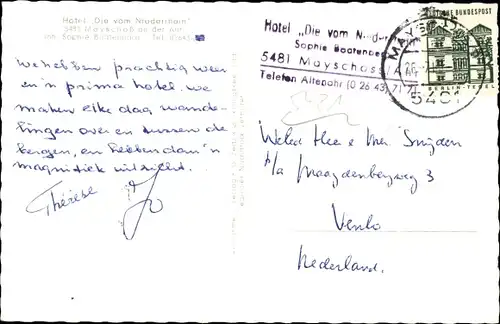 Hotel „Die vom Niederrhein"
5481 Mayschoß an der Ahr
Inh. Sophie
We hebben prachtig weer
en 'n prima hotel. we
maken elke dag wande-
lingen over en tussen de
bergen, en hebben dan 'n
magnifiek uitzicht.
Thérèse
Hotel „Die vom Niederrhein"
Sophie
5481 Mayschoss / Ahr
Telefon Altenahr (0 26 43) 71
MAYSCHOSS
5481
DEUTSCHE BUNDESPOST
BERLIN-TEGEL
Weled Heer & Mevr Snijders
p/a 3
Venlo
Nederland.